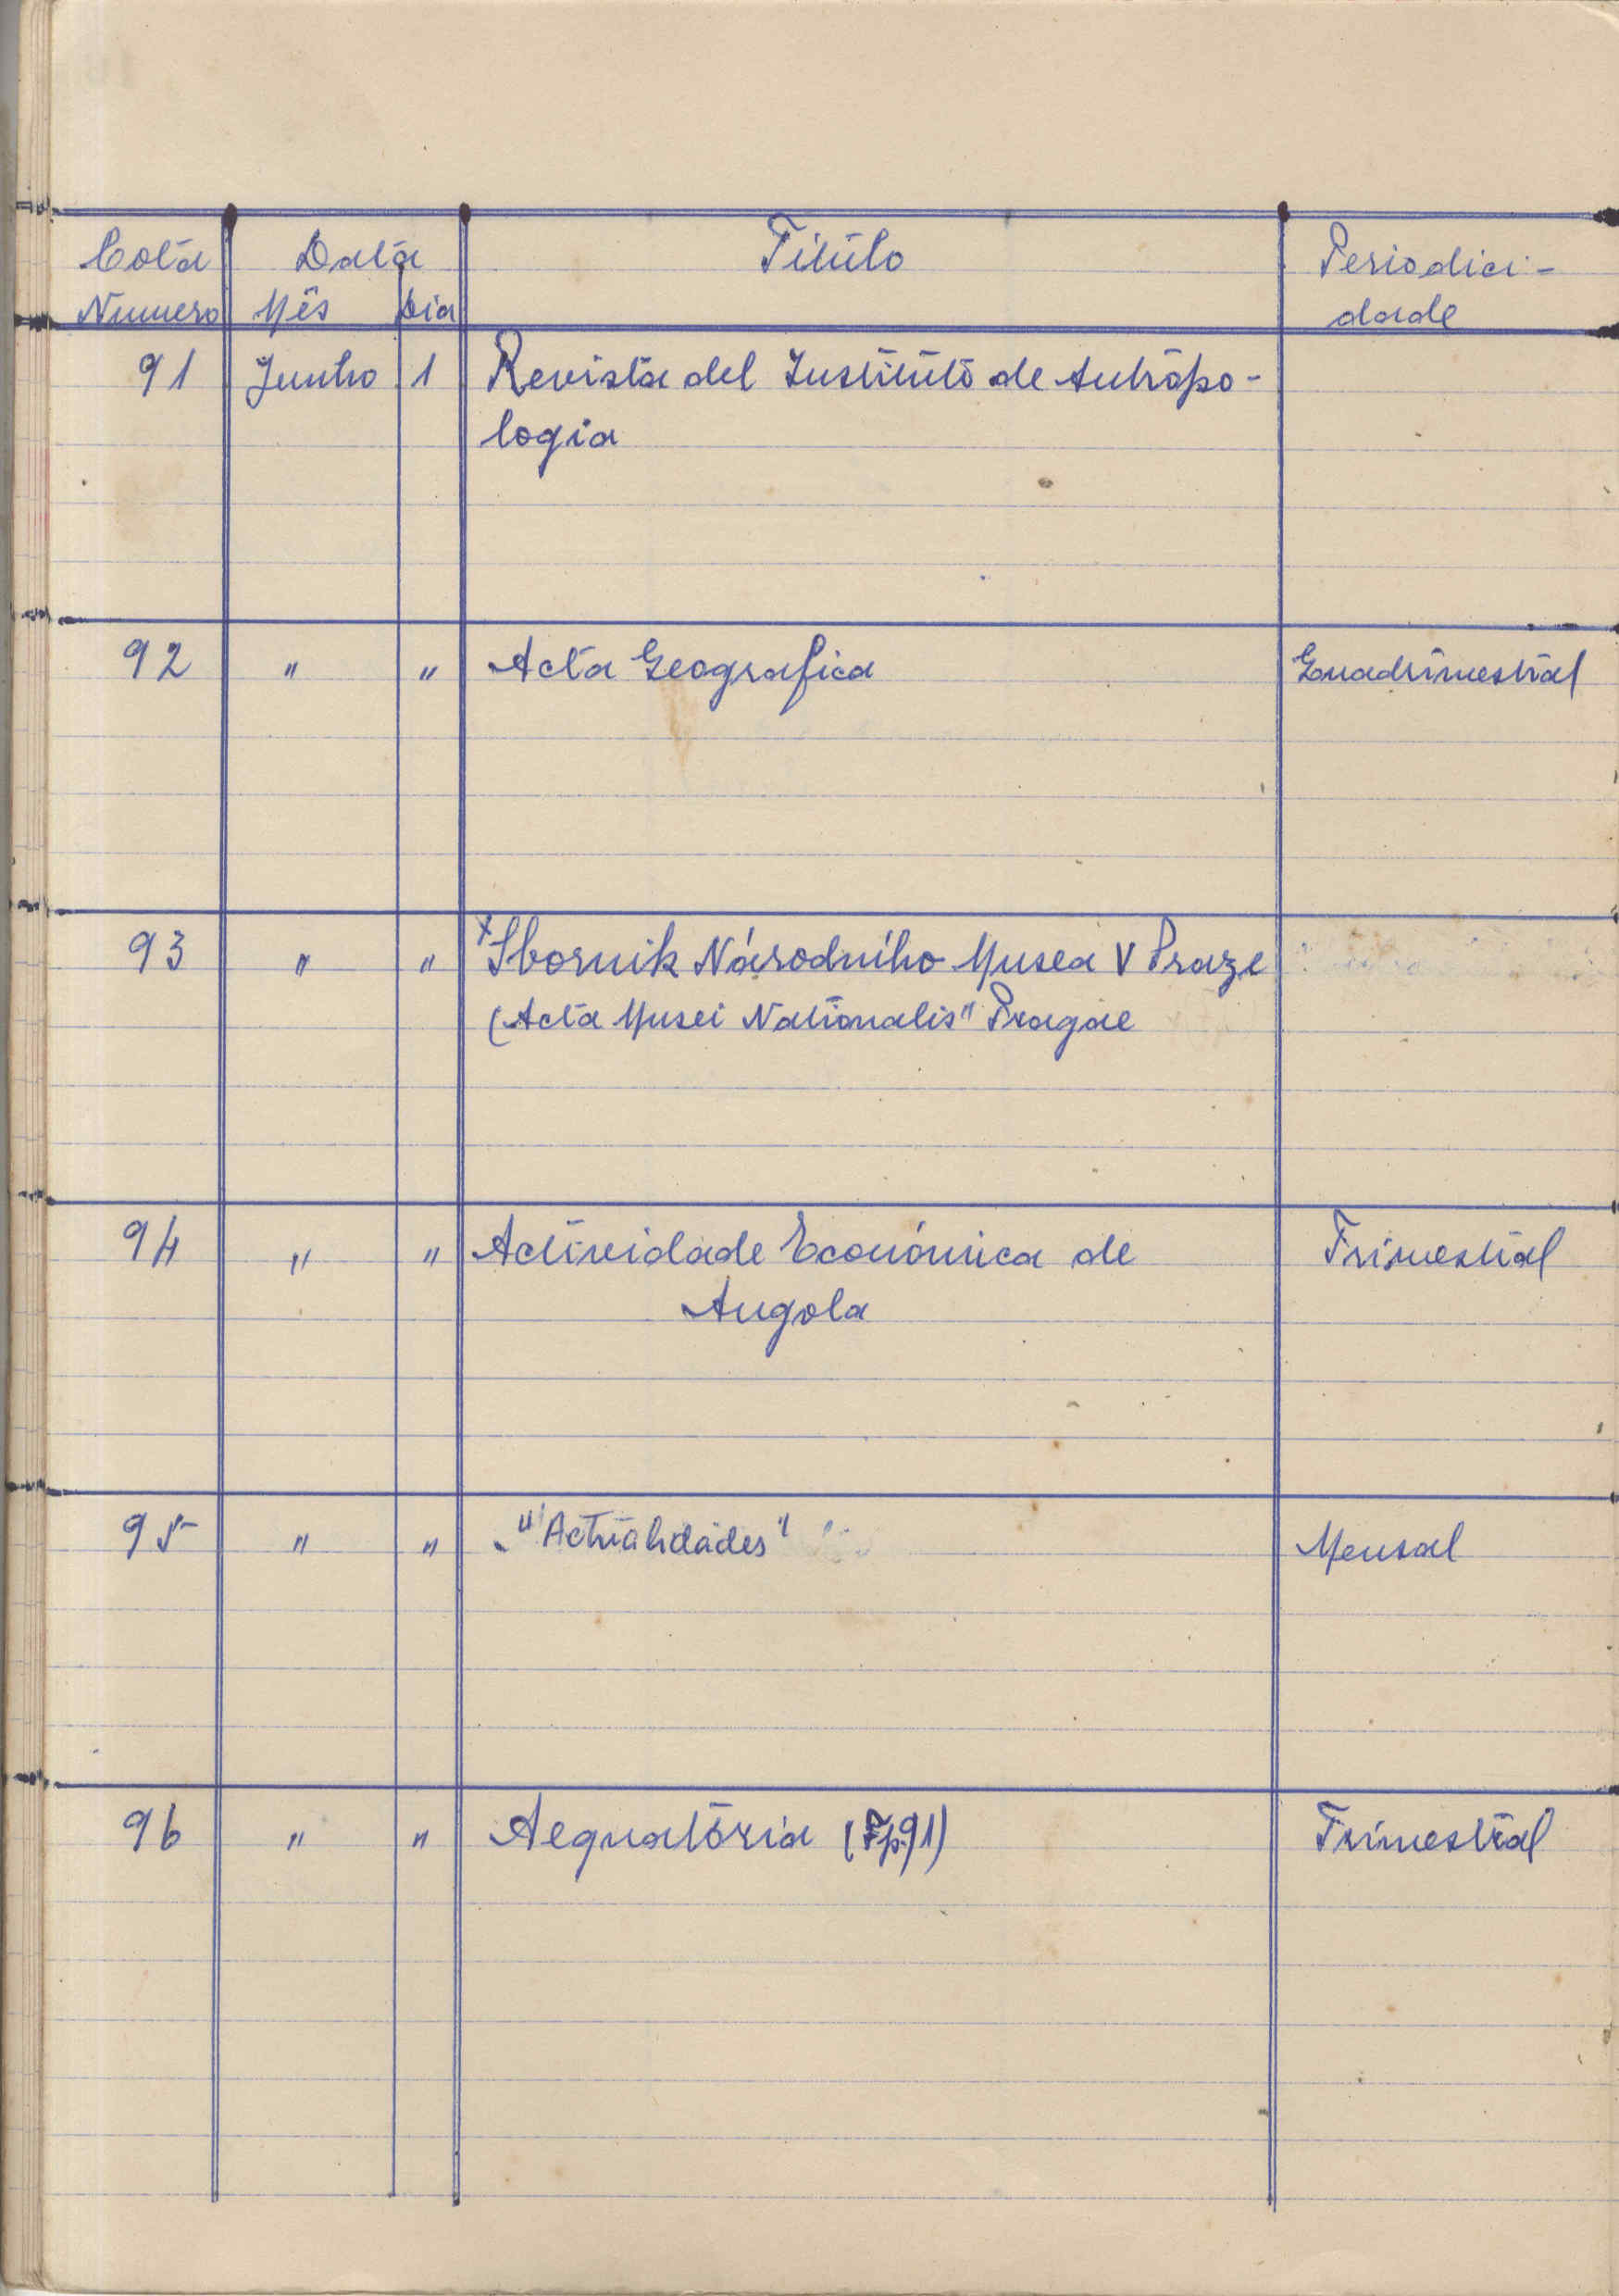 Cota Data Titulo Periodici-
Numero Mês Dia dade
91 Junho 1 Revista del Instituto de Antropo-
logia
92 " " Acta Geografica Quadrimestral
93 " " Sbornik Národního Musea V Praze
(Acta Musei Nationalis" Pragae
94 " " Actividade Económica de Trimestral
Angola
95 " " "Actualidades" Mensal
96 " " Aequatória Trimestral